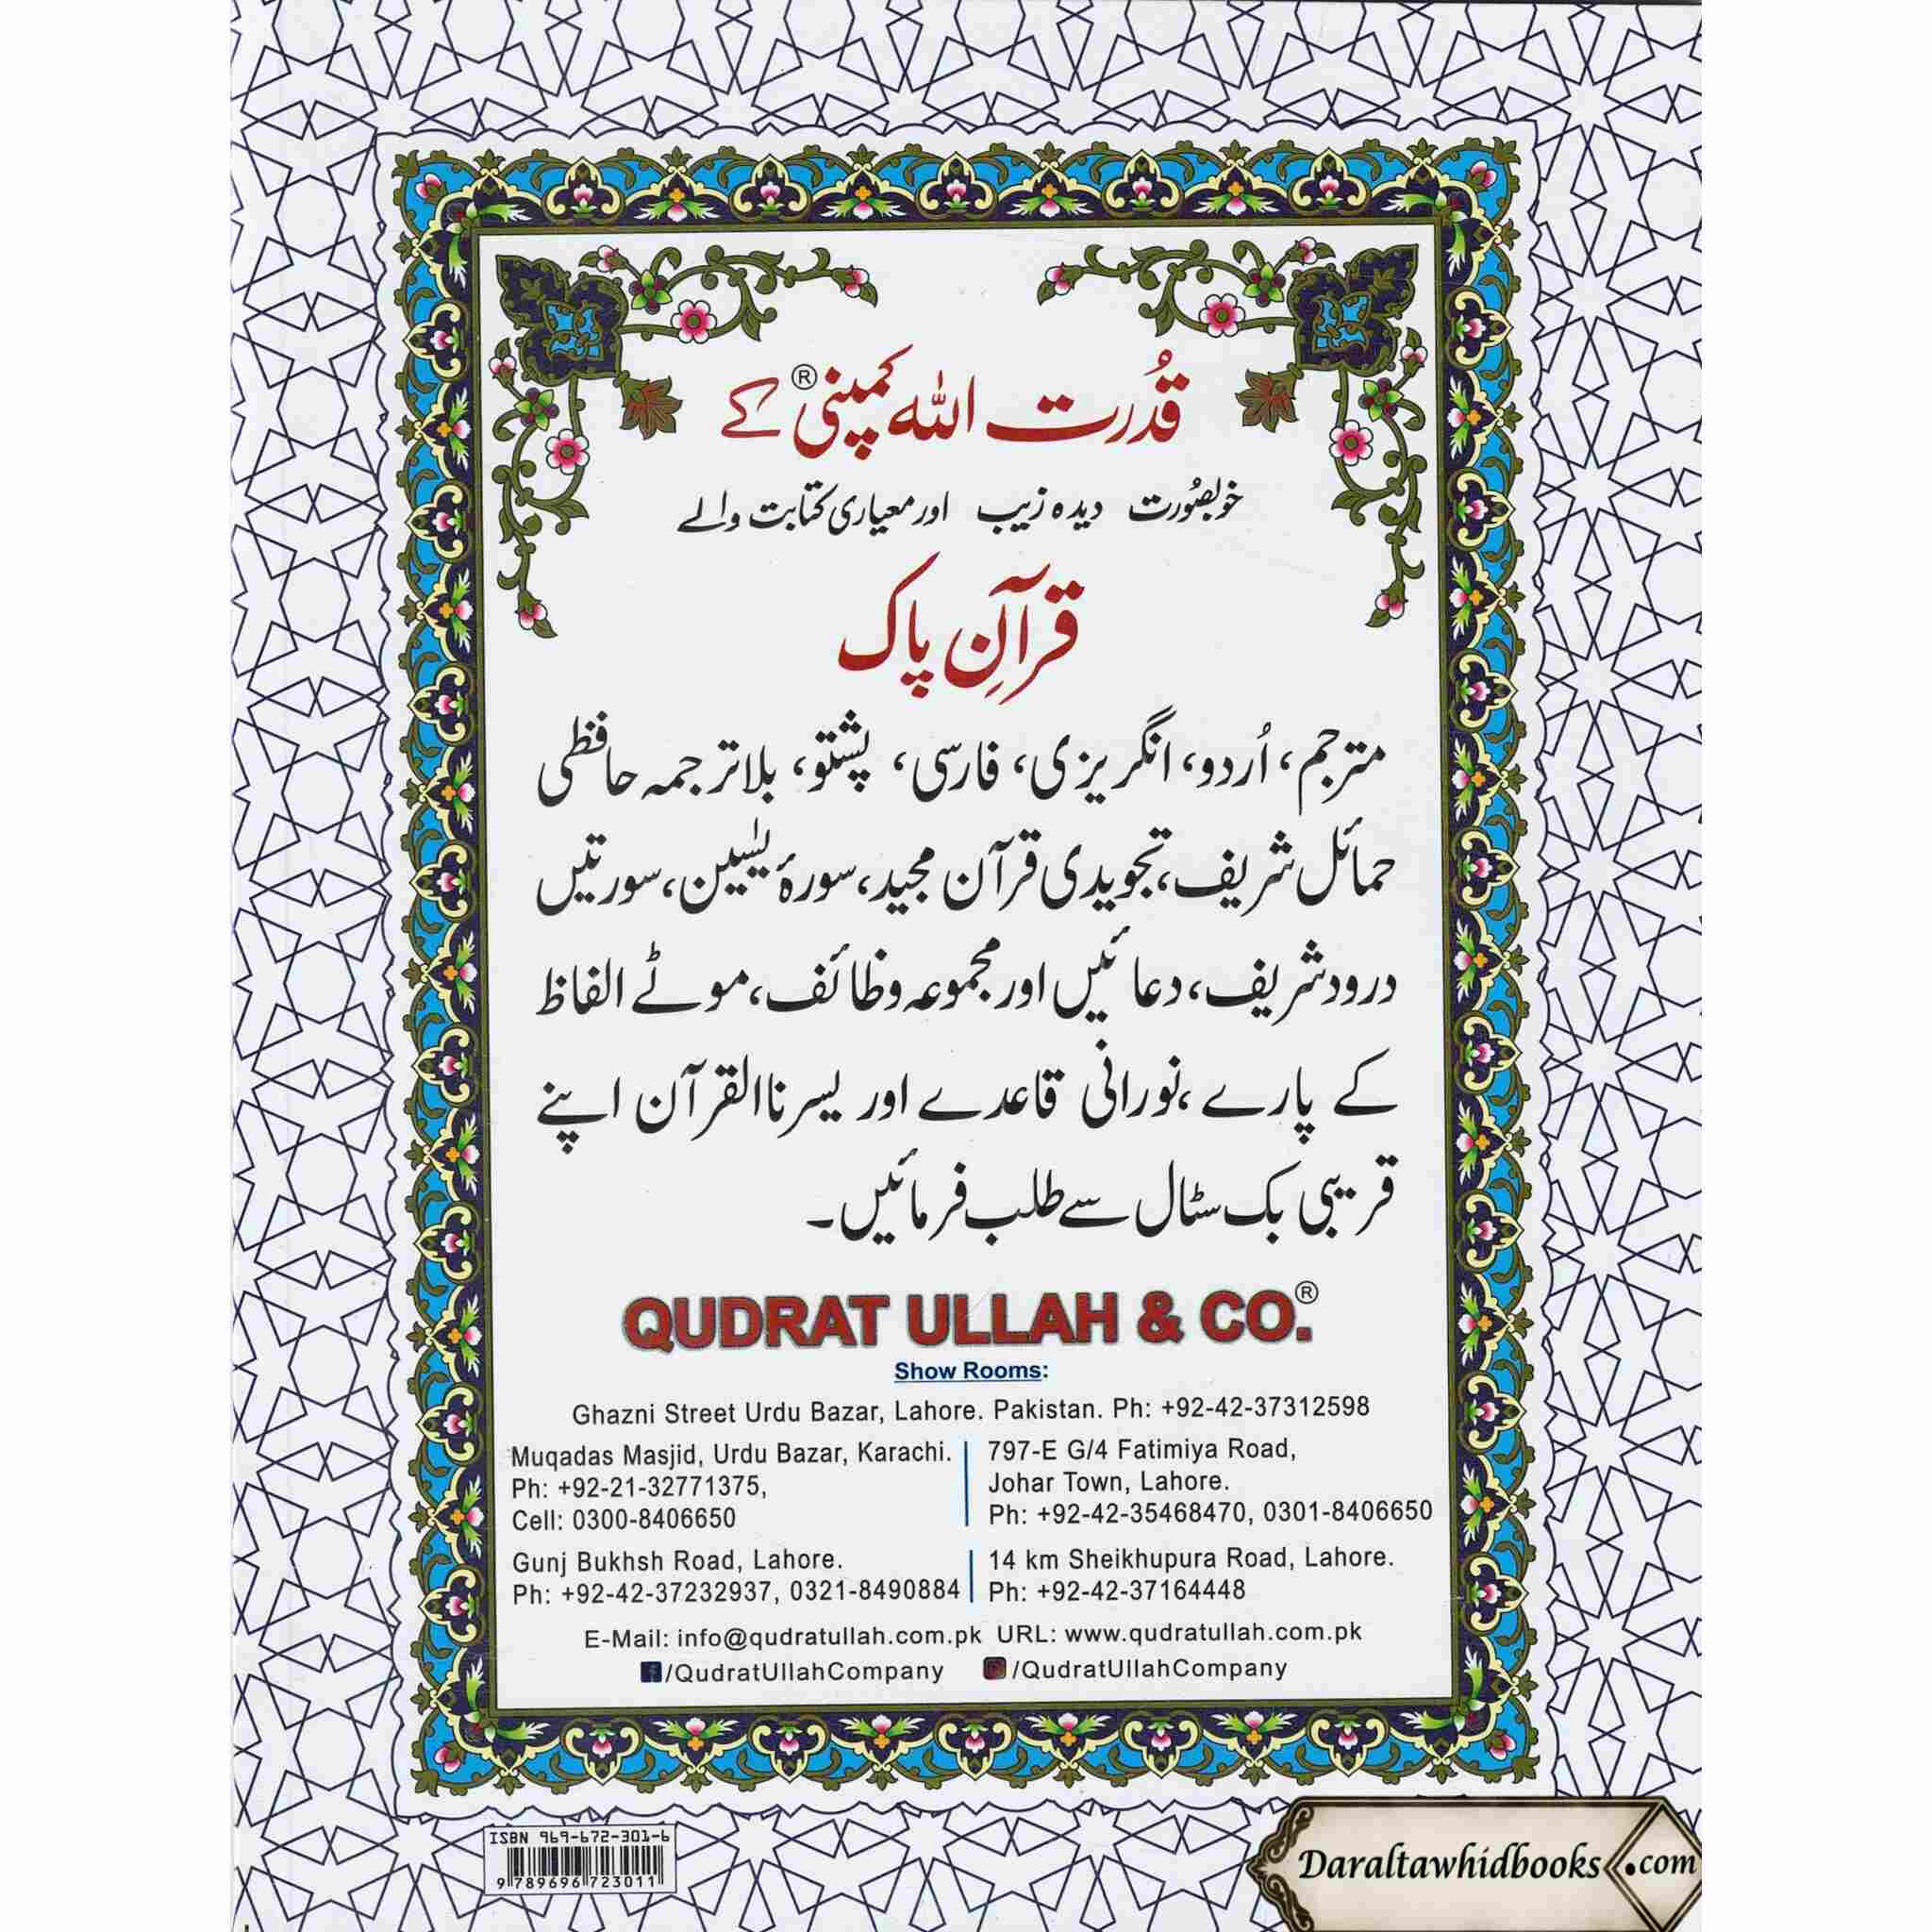 قُدرت اللہ کمپنی® کے
خوبصُورت دیدہ زیب اور معیاری کتابت والے
قرآنِ پاک
مترجم، اُردو، انگریزی، فارسی، پشتو، بلا ترجمہ حافظی
حمائل شریف، تجویدی قرآن مجید، سورۂ یٰسین، سورتیں
درود شریف، دعائیں اور مجموعہ وظائف، موٹے الفاظ
کے پارے، نورانی قاعدے اور یسرنا القرآن اپنے
قریبی بک سٹال سے طلب فرمائیں۔
QUDRAT ULLAH & CO.®
Show Rooms:
Ghazni Street Urdu Bazar, Lahore. Pakistan. Ph: +92-42-37312598
Muqadas Masjid, Urdu Bazar, Karachi.
Ph: +92-21-32771375,
Cell: 0300-8406650
797-E G/4 Fatimiya Road,
Johar Town, Lahore.
Ph: +92-42-35468470, 0301-8406650
Gunj Bukhsh Road, Lahore.
Ph: +92-42-37232937, 0321-8490884
14 km Sheikhupura Road, Lahore.
Ph: +92-42-37164448
E-Mail: info@qudratullah.com.pk URL: www.qudratullah.com.pk
/QudratUllahCompany /QudratUllahCompany
ISBN 969-672-301-6
9 789696 723011
Daraltawhidbooks.com